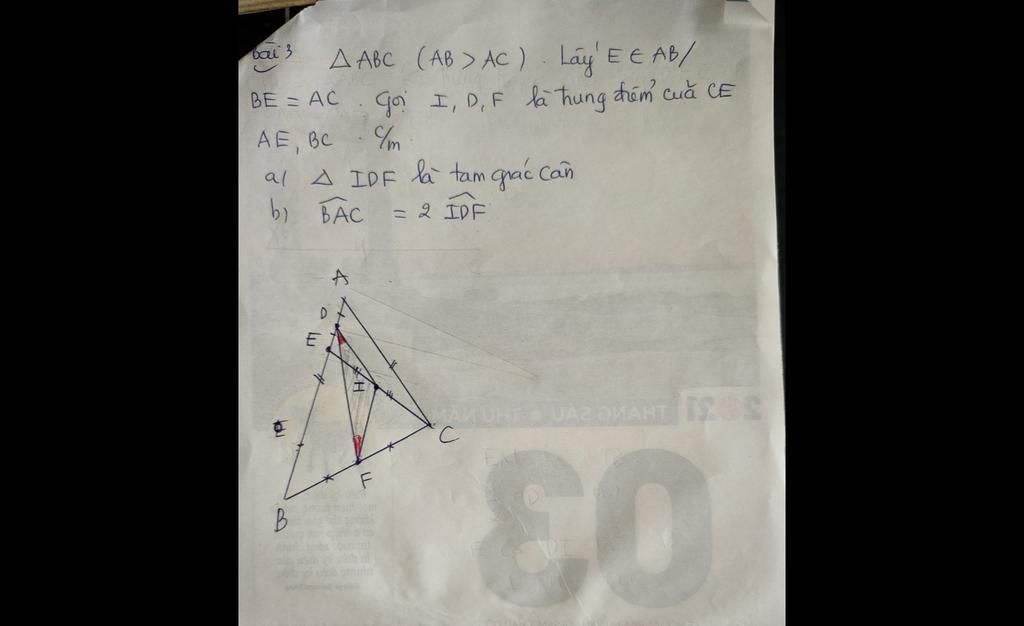 bài 3 △ ABC (AB > AC). Lấy E ∈ AB/
BE = AC. Gọi I, D, F là trung điểm cuả CE
AE, BC. C/m
a/ △ IDF là tam giác cân
b) \widehat{BAC} = 2 \widehat{IDF}
A
D
E
I
C
F
B
2021 THÁNG SÁU • THỨ NĂM
03